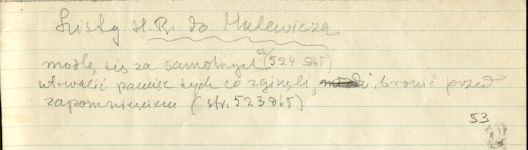 Listy H.R. do Malewicza
modlą się za samotnych (524 dół)
utrwalić pamięć tych co zginęli, bronić przed
zapomnieniem (str. 523 dół)
53